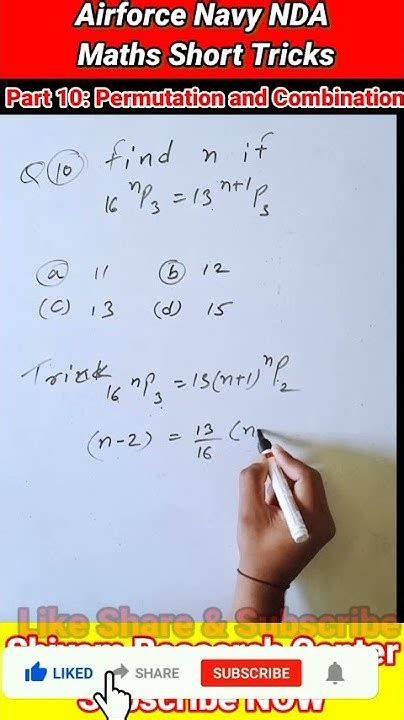 Airforce Navy NDA
Maths Short Tricks
Part 10: Permutation and Combination
Q 10 find n if
16 ⁿP₃ = 13 ⁿ⁺¹P₃
(a) 11 (b) 12
(C) 13 (d) 15
Trick 16 nP₃ = 13(n+1) ⁿP₂
(n-2) = 13/16 (n
Like Share & Subscribe
LIKED SHARE SUBSCRIBE
Subscribe Now